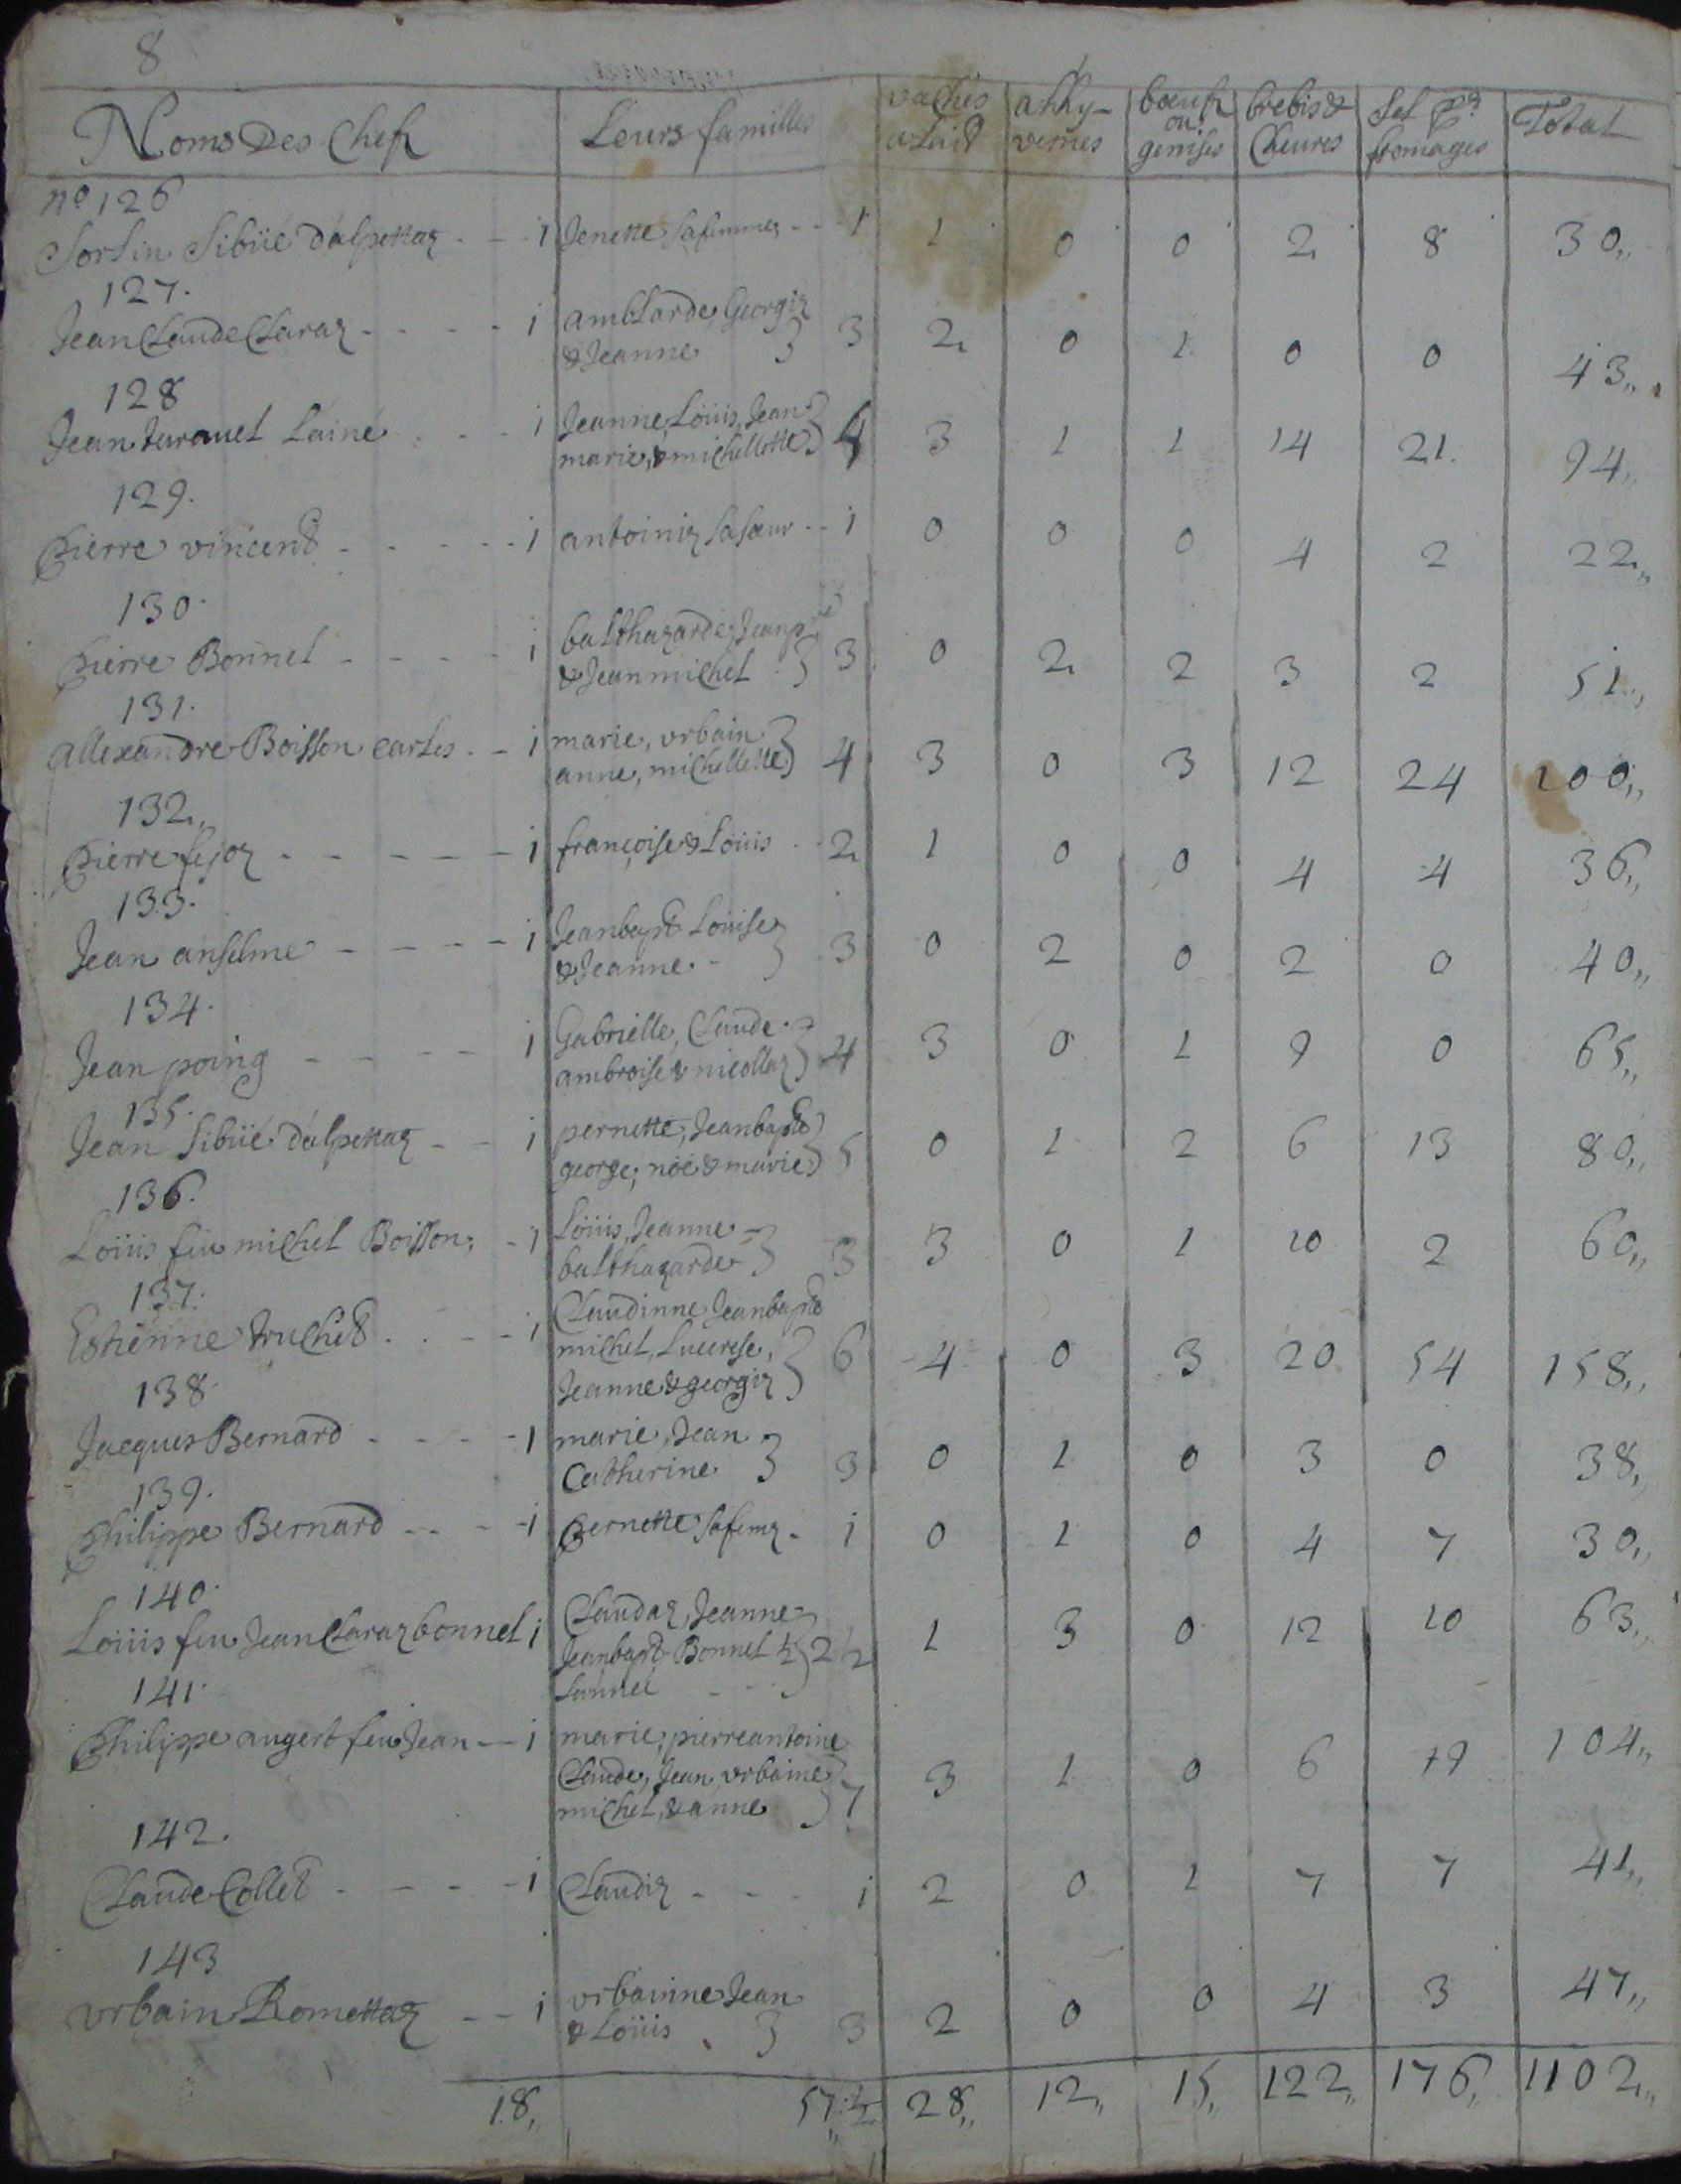 8
Noms Des Chefz | Leurs familles | vaches a Lait | ahhy-vernes | bœufz ou genises | brebis & Cheures | Sel pr. fromages | Total
no 126
Sorlin Sibüé dálpettaz - - 1 | Jenette sa femme - - 1 | 1 | 0 | 0 | 2 | 8 | 30,,
127.
Jean Claude Claraz - - - - 1 | amblarde, Georgiz
& Jeanne } 3 | 2 | 0 | 1 | 0 | 0 | 43,,
128
Jean turauel Lainé - - 1 | Jeanne, Loüis, Jean
marie, & michellotte } 4 | 3 | 1 | 1 | 14 | 21. | 94,,
129.
pierre vincend - - - - - 1 | antoiniz sa sœur - - 1 | 0 | 0 | 0 | 4 | 2 | 22,,
130.
pierre Bonnel - - - - 1 | balthazarde, Jean pre
& Jean michel } 3 | 0 | 2 | 2 | 3 | 2 | 51,,
131.
allexandre Boisson carles - - 1 | marie, vrbain
anne, michellette } 4 | 3 | 0 | 3 | 12 | 24 | 100,,
132,,
pierre fejoz - - - - - 1 | françoise & Loüis - - 2 | 1 | 0 | 0 | 4 | 4 | 36,,
133.
Jean anselme - - - - 1 | Jean bapt Loüise
& Jeanne - } 3 | 0 | 2 | 0 | 2 | 0 | 40,,
134.
Jean poing - - - - 1 | Gabrielle, Claude
ambroise & nicollaz } 4 | 3 | 0 | 1 | 9 | 0 | 65,,
135.
Jean Sibüé dálpettaz - - 1 | pernette, Jean bapte
george, noé & marie } 5 | 0 | 1 | 2 | 6 | 13 | 80,,
136.
Loüis feu michel Boisson, - 1 | Loüis, Jeanne
balthazarde } 3 | 3 | 0 | 1 | 10 | 2 | 60,,
137.
Estienne truchet - - - 1 | Claudinne Jean bapte
michel, Lucrese,
Jeanne & georgiz } 6 | 4 | 0 | 3 | 20 | 54 | 158,,
138.
Jacques Bernard - - - - 1 | marie, Jean
Catherine } 3 | 0 | 1 | 0 | 3 | 0 | 38,,
139.
philippe Bernard - - - - 1 | pernette sa femz - 1 | 0 | 1 | 0 | 4 | 7 | 30,,
140.
Loüis feu Jean Claraz bonnel 1 | Claudaz, Jeanne
Jean bapt Bonnel ½ } 2 ½ | 1 | 3 | 0 | 12 | 10 | 63,,
141.
philippe augert feu Jean - - 1 | marie, pierre antoine
Claude, Jean, vrbaine
michel, & anne } 7 | 3 | 1 | 0 | 6 | 19 | 104,,
142.
Claude Collet - - - - 1 | Claudiz - - - 1 | 2 | 0 | 1 | 7 | 7 | 41,,
143
vrbain Romettaz - - 1 | vrbainne Jean
& Loüis } 3 | 2 | 0 | 0 | 4 | 3 | 47,,
18,, | 57 ½,, | 28,, | 12,, | 15,, | 122,, | 176,, | 1102,,